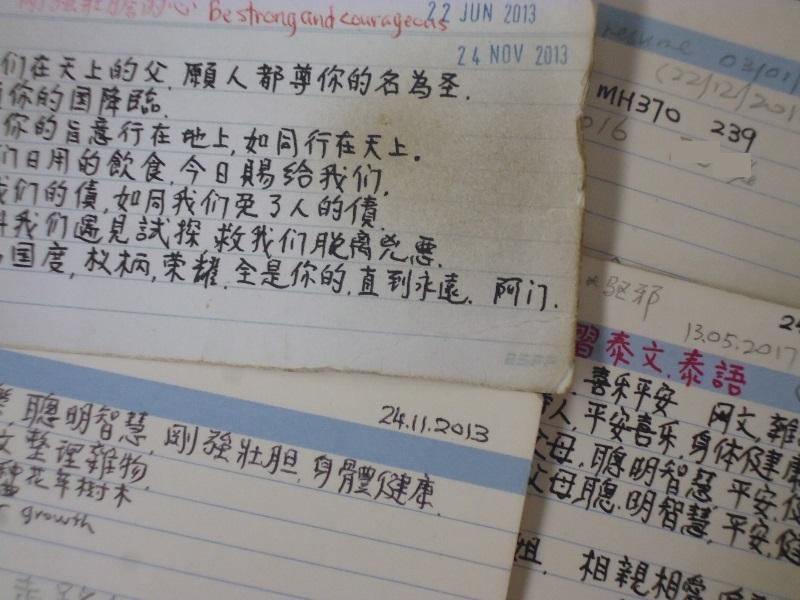 刚强壮胆的心 Be strong and courageous
22 JUN 2013
24 NOV 2013
们在天上的父. 願人都尊你的名為圣.
你的国降臨.
你的旨意行在地上, 如同行在天上。
们日用的飲食, 今日賜給我们,
我们的債, 如同我们免了人的債.
我们遇見試探. 救我们脱离兇惡.
国度, 权柄, 荣耀. 全是你的, 直到永遠. 阿门.
resume 03/01/
(22/12/201
MH370 239
016
驱邪
13.05.2017
習泰文.泰語
喜乐平安 网文, 雜
人, 平安喜乐, 身体健康
父母, 聰明智慧, 平安, 健
父母聰明智慧, 平安, 健
姐. 相親相愛
24.11.2013
聰明智慧, 剛強壯胆, 身體健康.
文整理雜物.
種花草樹木
growth